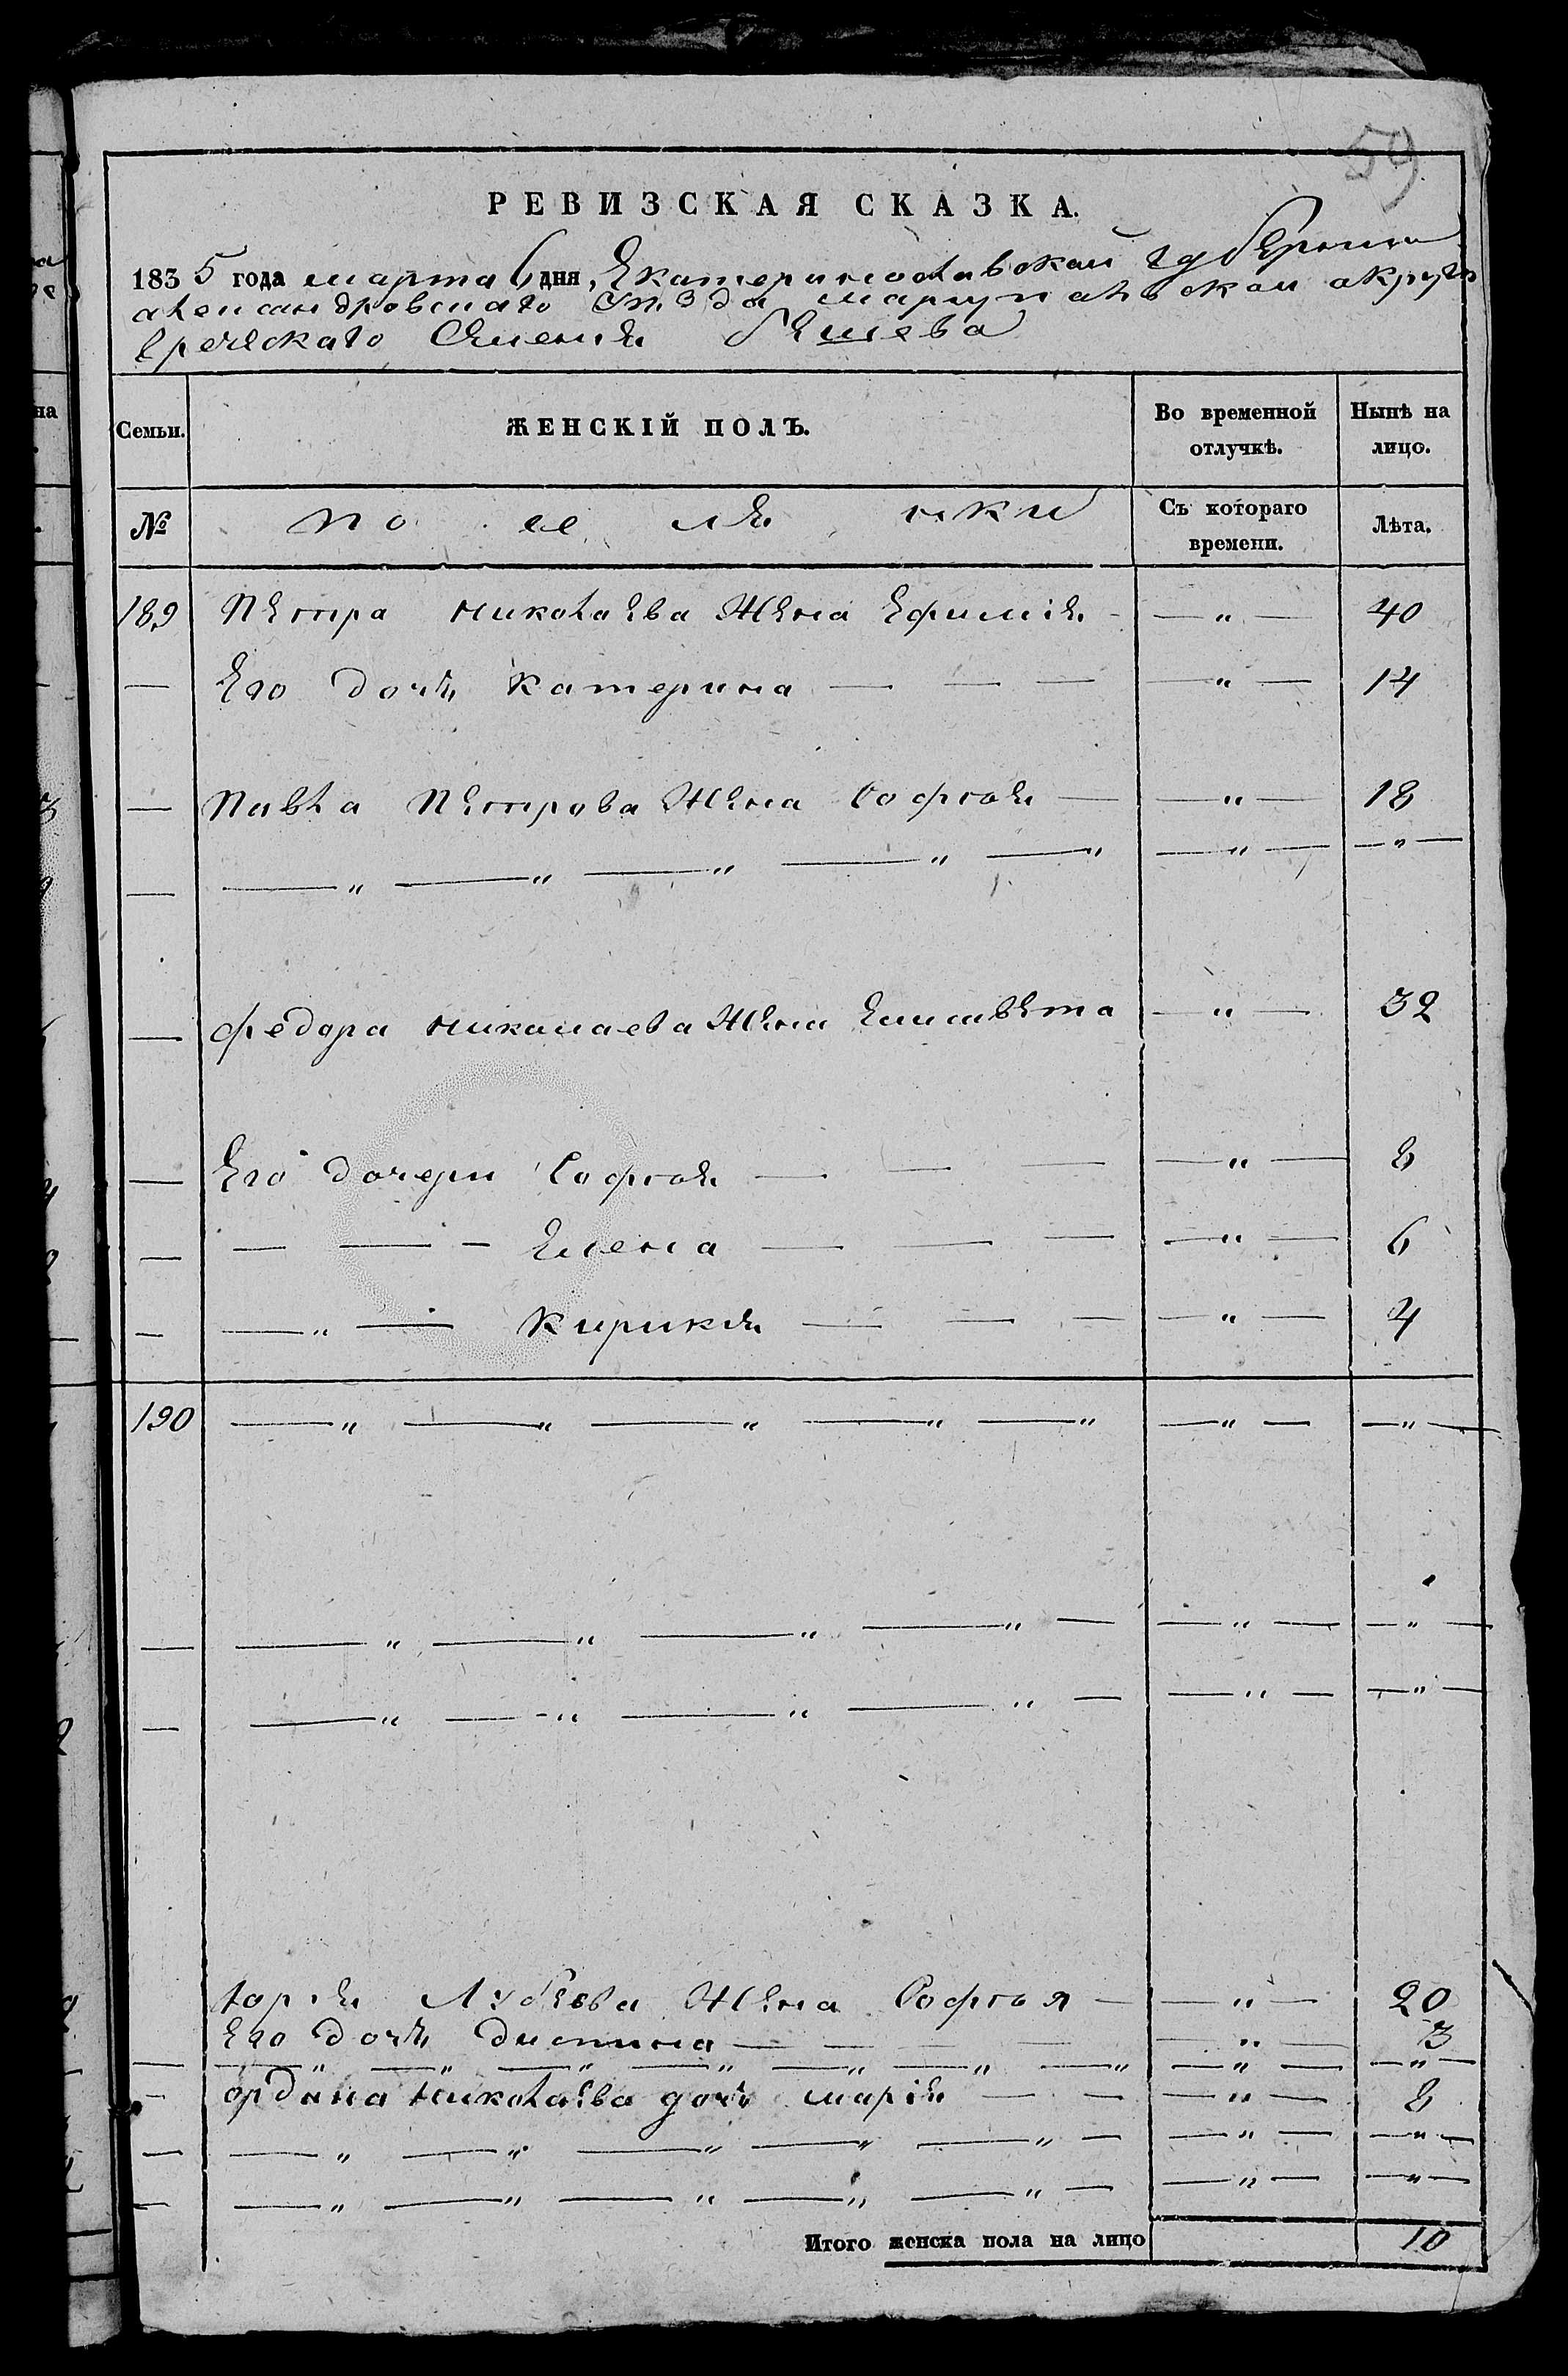 59
РЕВИЗСКАЯ СКАЗКА.
1835 года марта 6 дня, Екатеринославской губернии
александровскаго уезда мариупольской округи
греческаго Селения бешева
Семьи. ЖЕНСКІЙ ПОЛЪ. Во временной отлучкѣ. Нынѣ на лицо.
№ поселянки Съ котораго времени. Лѣта.
189 Петра николаева Жена Ефимія — „ — 40
— Его дочь катерина — — — — „ — 14
— Павла Петрова Жена Софгоя — — „ — 18
— — „ — „ — „ — „ — „ — „ — — „ —
— федора николаева Жена Елисавета — „ — 32
— Его дочери Софгоя — — — — „ — 8
— — — — Елена — — — — „ — 6
— — „ — кирикія — — — — „ — 4
190 — „ — „ — „ — „ — „ — „ — — „ —
— — „ — „ — „ — „ — — „ — — „ —
— — „ — „ — „ — „ — — „ — — „ —
Жена Софгоя — — „ — 20
Его дочь — — — — „ — 3
— — „ — „ — „ — „ — „ — „ — „ — „ — — „ —
— николаева дочь марія — — — „ — 8
— — „ — „ — „ — „ — „ — — „ — — „ —
— — „ — „ — „ — „ — „ — — „ — — „ —
Итого женска пола на лицо 10